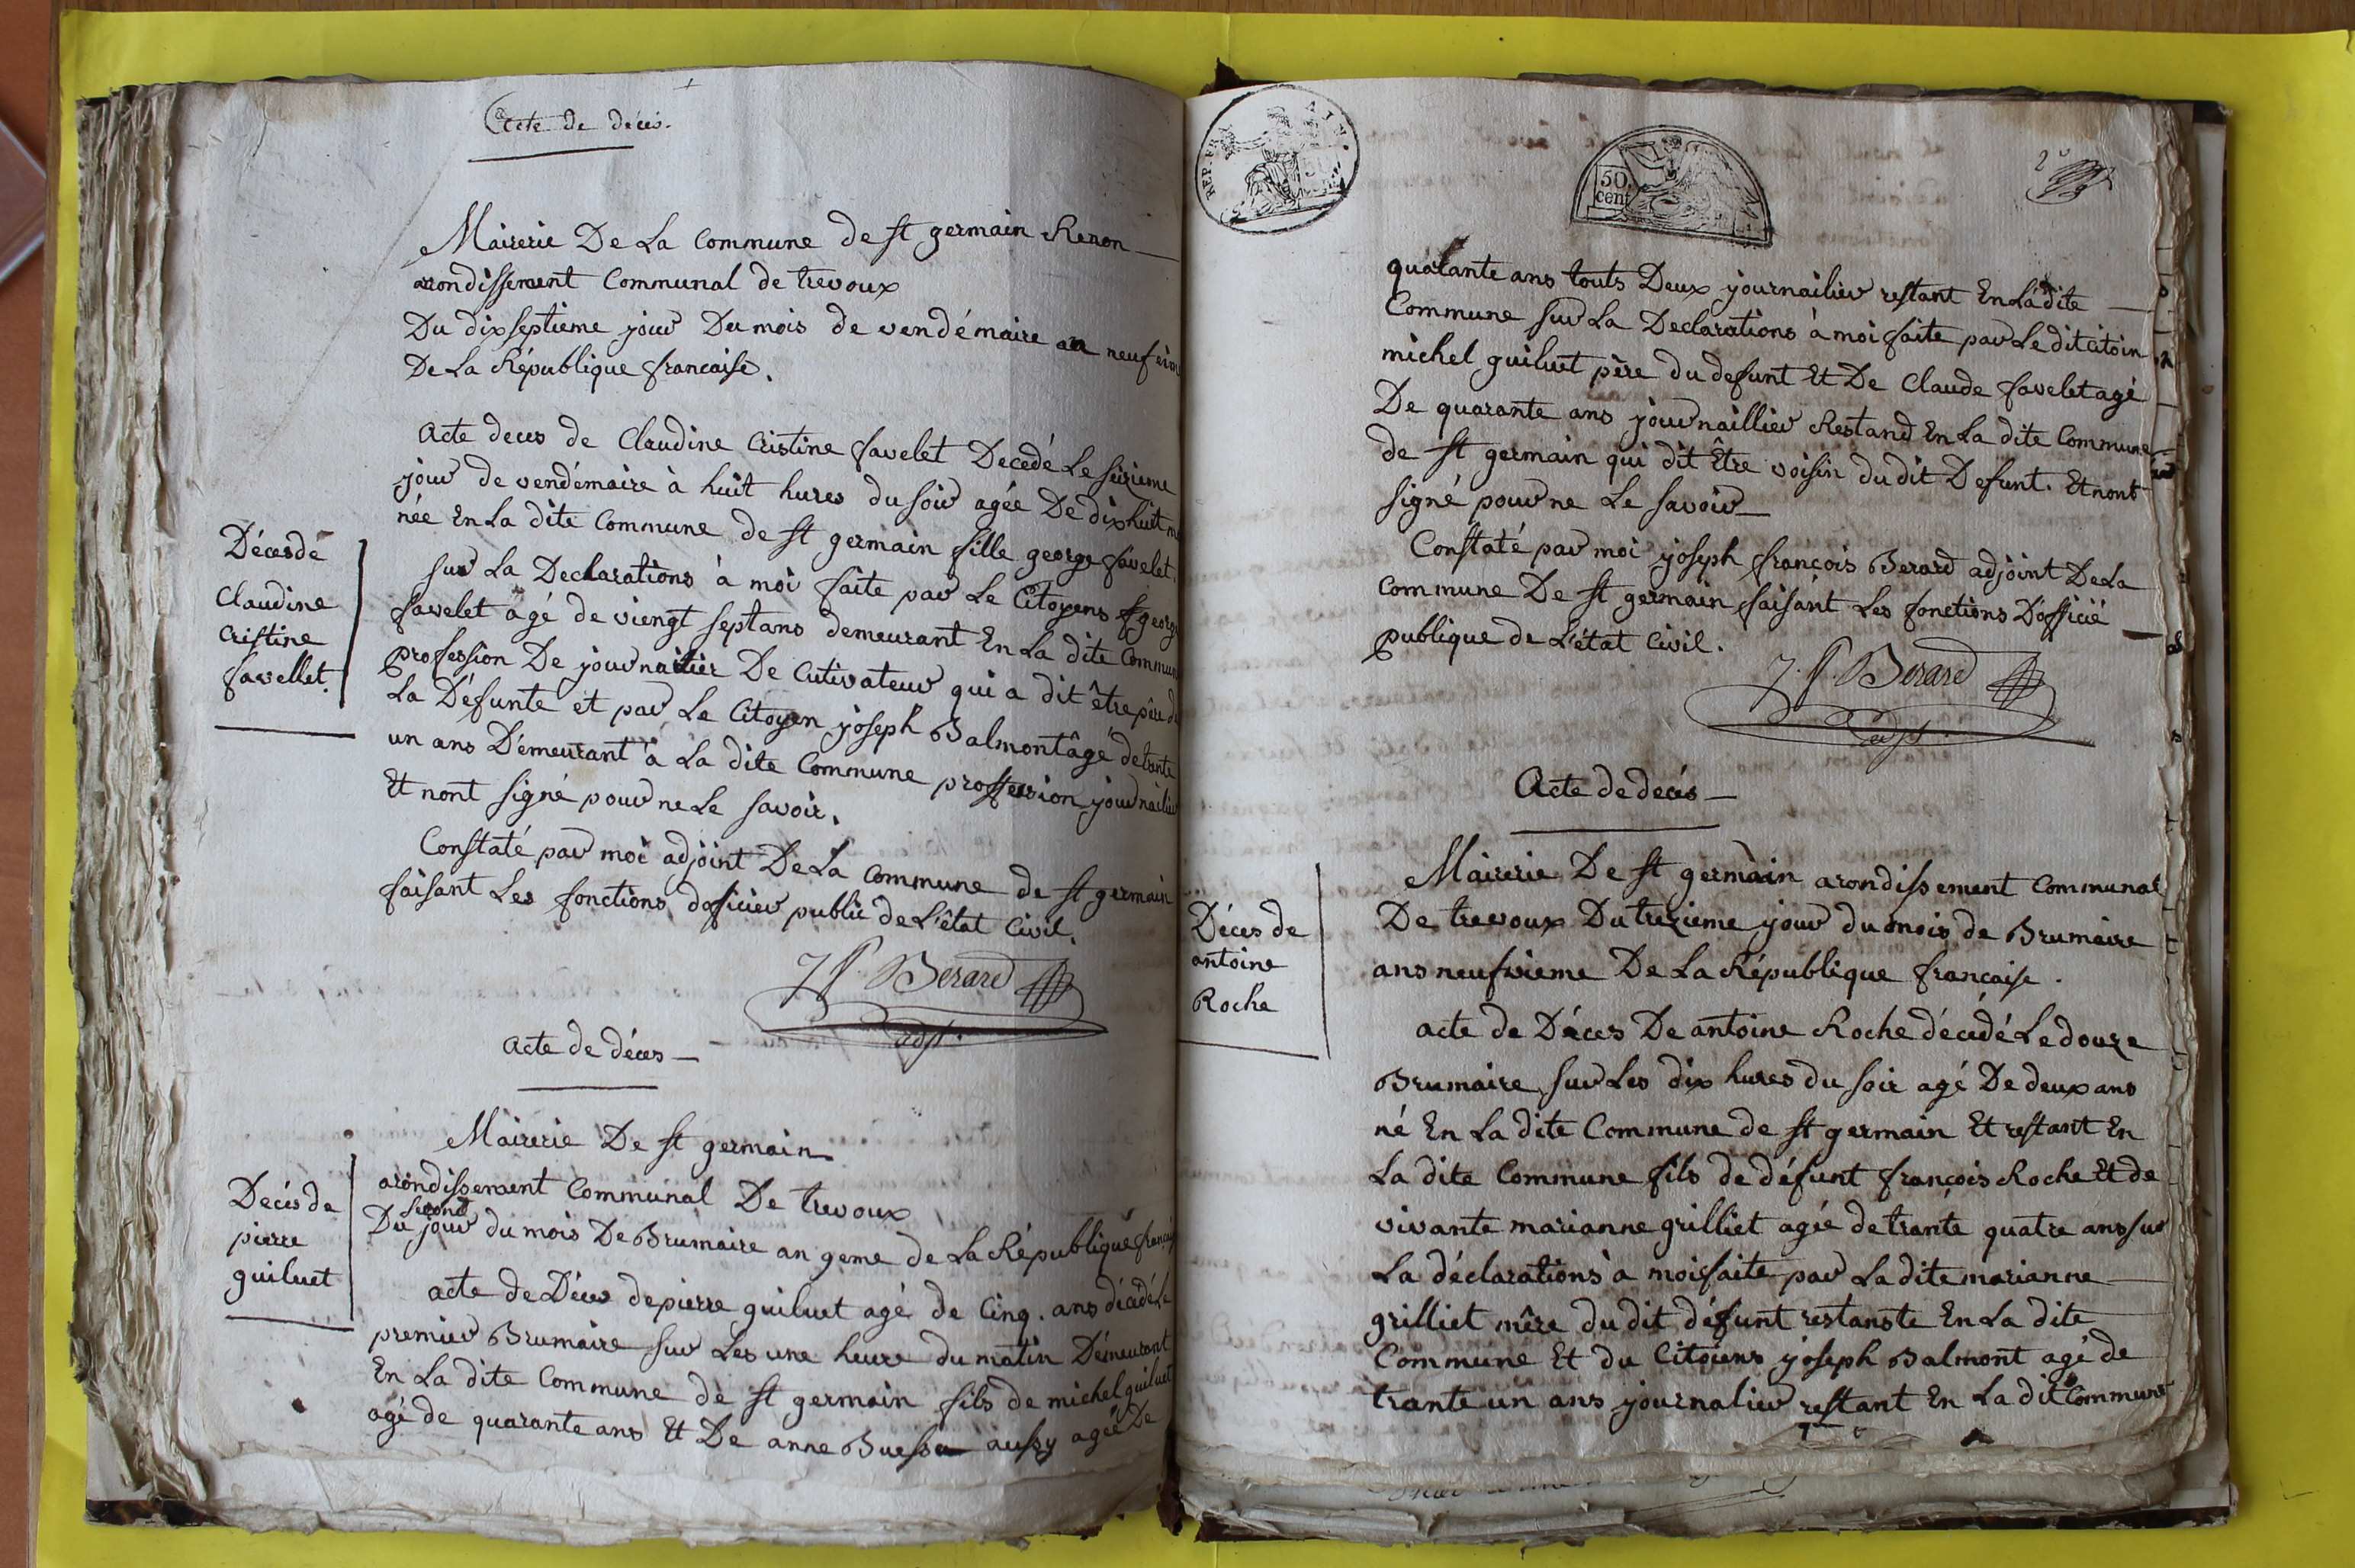 Acte de décès.
Mairerie De La Commune de st germain Renon
arondissement Communal de trevoux
Du dixseptieme jour Du mois de vendémaire an neufeim
De La République francaise.
Décès de
Claudine
Cristine
favellet.
Acte deces de Claudine Cristine favelet Decedé Le seizieme
jour de vendémaire à huit hures du soir agée De dixhuit m
née En La dite Commune de st germain fille george favelet.
sur La Declarations à moi faite par Le Citoyens george
favelet agé de viengt sept ans demeurant En La dite Commun
profession De journailier De Cutivateur qui a dit être père de
La Défunte et par Le Citoyen joseph Balmont âgé de trante
un ans Démeurant à La dite Commune proffession journailier
Et nont signé pour ne Le savoir.
Constaté par moi adjoint De La Commune de st germain
faisant Les fonctions doficier public de L'état Civil.
J f. Berard
adjt.
Acte de déces
Mairerie De st germain
arondissement Communal De trevoux
second
Du jour du mois De Brumaire an 9eme de La République francais
Decès de
pierre
guiluet
acte de Déces de pierre guiluet agé de Cinq. ans décédé Le
premier Brumaire sur Les une heure du matin Démeurant
En La dite Commune de st germain fils de michel guiluet
agé de quarante ans Et De anne aussy agée De
REP. FRA
AIN.
50
cent
2e
quatante ans touts Deux journailier restant En La dite
Commune sur La Declarations à moi faite par Le dit citoin
michel guiluet père du defunt Et De Claude favelet agé
De quarante ans journaillier Restand En La dite Commune
de st germain qui dit Être voisin du dit Defunt. Et nont
signé pour ne Le savoir
Constaté par moi joseph françois Berard adjoint De La
Commune De st germain faisant Les fonctions D'officié
publique de L'état Civil.
J. f. Berard
adjt.
Acte de decés
Mairerie De st germain arondissement Communal
De trevoux Du trezieme jour du mois de Brumaire
ans neufvieme De La République francaise.
Déces de
antoine
Roche
acte de Déces De antoine Roche décédé Le douze
Brumaire sur Les dix hures du soir agé De deux ans
né En La dite Commune de st germain Et restant En
La dite Commune fils de défunt françois Roche Et de
vivante marianne grilliet agée de trante quatre ans sur
La déclarations à moi faite par La dite marianne
grilliet mère du dit défunt restanste En La dite
Commune Et du Citoiens joseph Balmont agé de
trante un ans journalier restant En La dit Commune